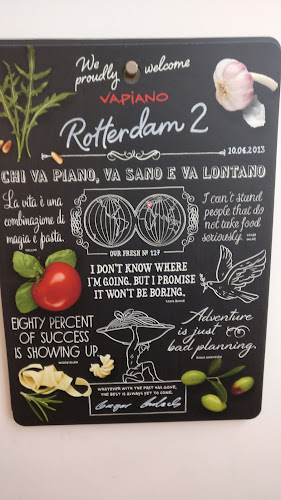 We proudly welcome
VAPIANO
Rotterdam 2
10.06.2013
CHI VA PIANO, VA SANO E VA LONTANO
La vita è una
combinazione di
magia e pasta.
FELLINI
OUR FRESH Nº 127
I can't stand
people that do
not take food
seriously.
OSCAR WILDE
I DON'T KNOW WHERE
I'M GOING. BUT I PROMISE
IT WON'T BE BORING.
DAVID BOWIE
EIGHTY PERCENT
OF SUCCESS
IS SHOWING UP.
WOODY ALLEN
Adventure
is just
bad planning.
ROALD AMUNDSEN
WHATEVER WITH THE PAST HAS GONE,
THE BEST IS ALWAYS YET TO COME.